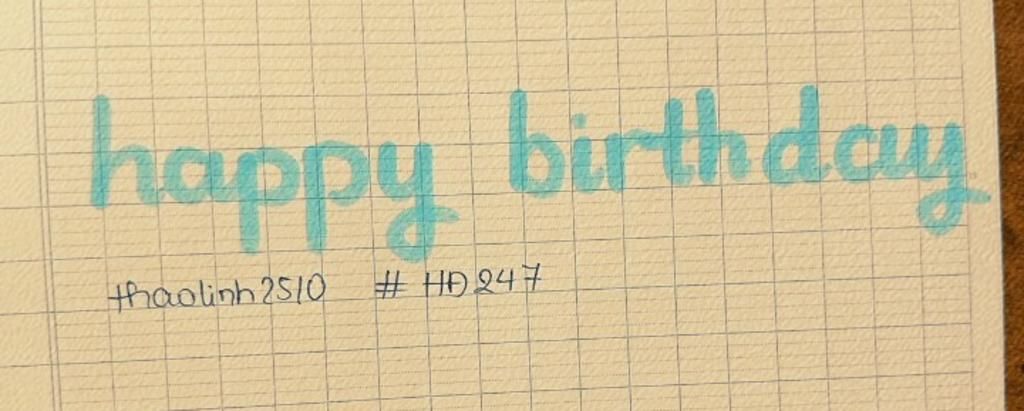 happy birthday
thaolinh2510 # HĐ247